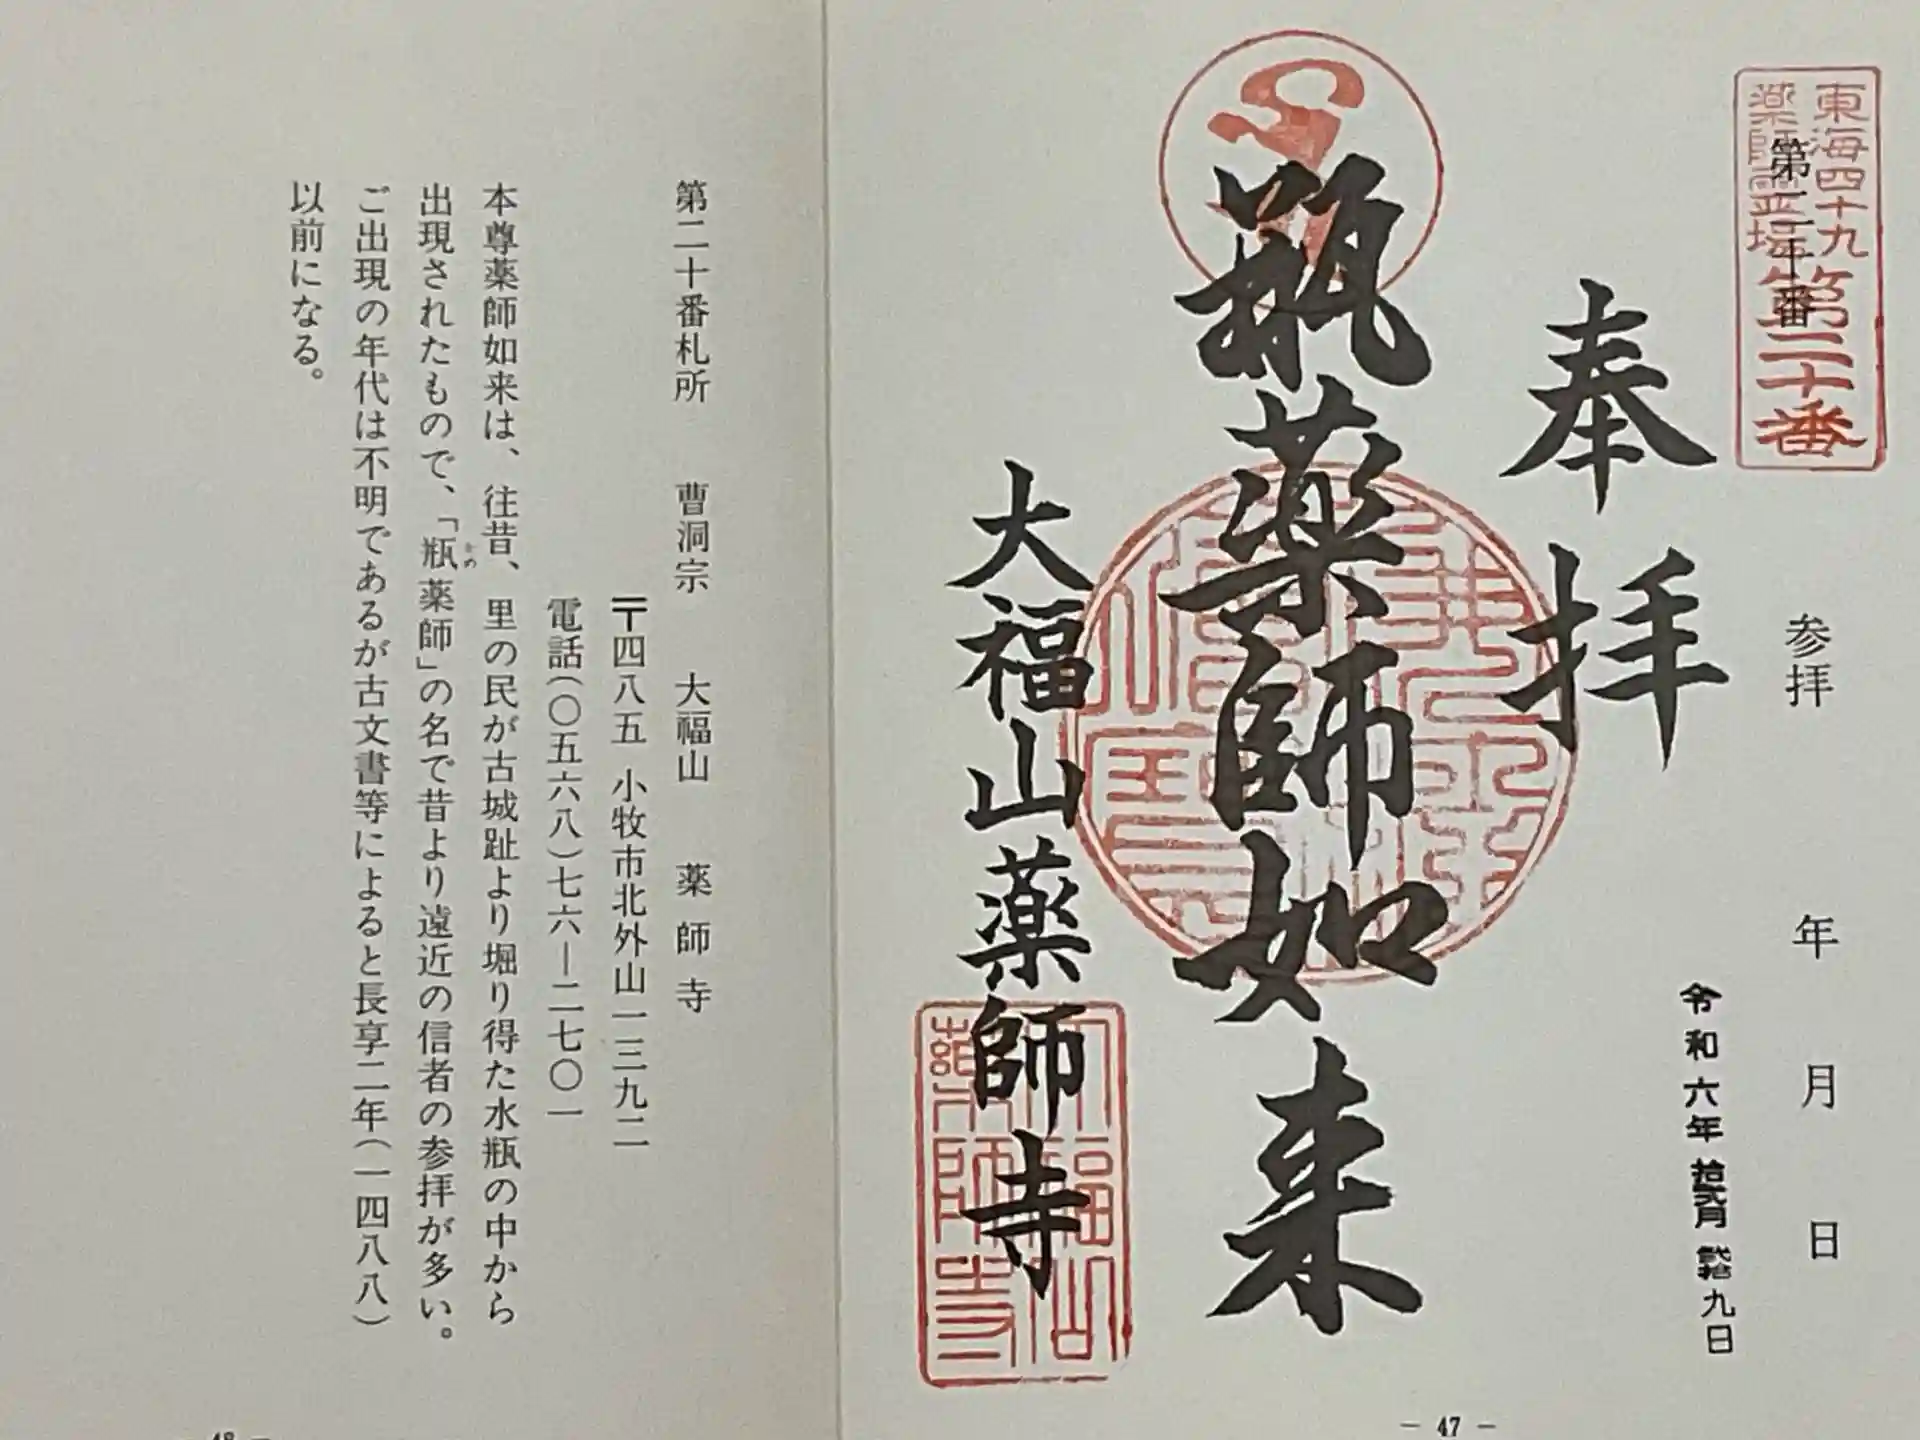 東海四十九
薬師霊場第二十番
第二十番
参拝 年 月 日
令和六年拾弐月弐拾九日
奉拝
瓶薬師如来
大福山薬師寺
大福山
薬師寺
― 47 ―
第二十番札所 曹洞宗 大福山 薬師寺
〒四八五 小牧市北外山一三九二
電話(〇五六八)七六―二七〇一
本尊薬師如来は、往昔、里の民が古城趾より堀り得た水瓶の中から
出現されたもので、「瓶薬師」の名で昔より遠近の信者の参拝が多い。
ご出現の年代は不明であるが古文書等によると長享二年(一四八八)
以前になる。
48 ―